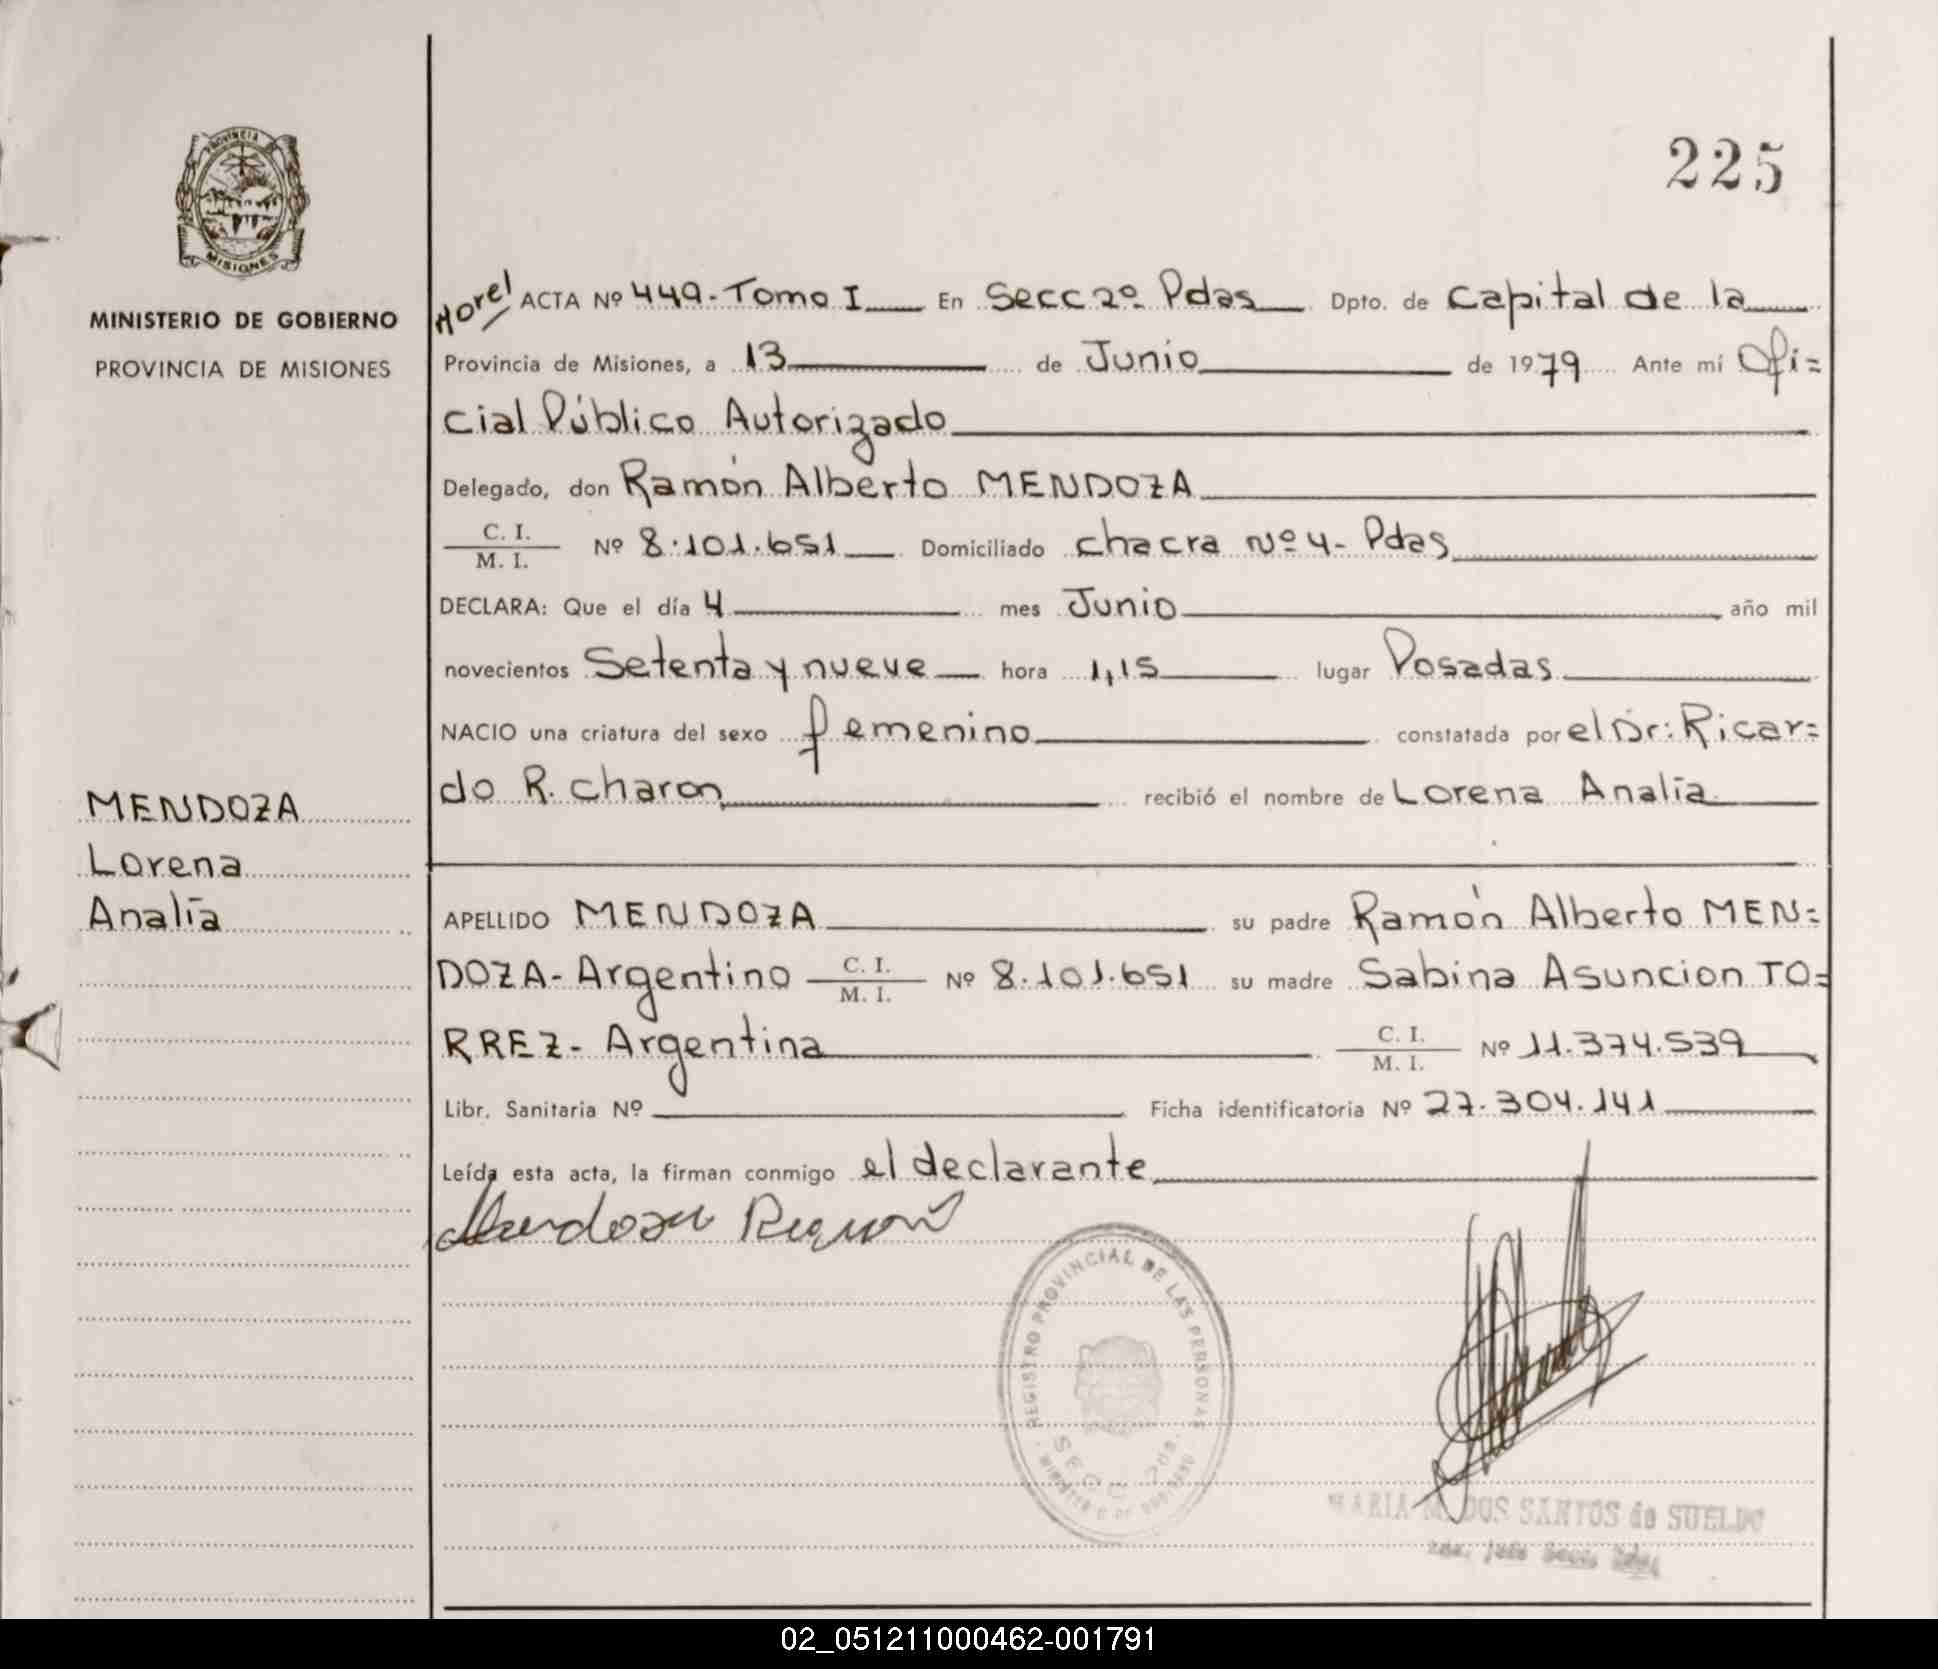 225
PROVINCIA DE
MISIONES
MINISTERIO DE GOBIERNO
PROVINCIA DE MISIONES
MENDOZA
Lorena
Analía
ACTA Nº 449-Tomo I En Secc 2º Pdas Dpto. de Capital de la
Provincia de Misiones, a 13 de Junio de 1979 Ante mí Ofi=
cial Público Autorizado
Delegado, don Ramón Alberto MENDOZA
C. I.
M. I. Nº 8.101.651 Domiciliado chacra Nº 4- Pdas
DECLARA: Que el día 4 mes Junio año mil
novecientos Setenta y nueve hora 1,15 lugar Posadas
NACIO una criatura del sexo femenino constatada por el Dr: Ricar=
do R. Charon recibió el nombre de Lorena Analía
APELLIDO MENDOZA su padre Ramón Alberto MEN=
DOZA- Argentino C. I. M. I. Nº 8.101.651 su madre Sabina Asuncion TO=
RREZ- Argentina C. I. M. I. Nº 11.374.539
Libr. Sanitaria Nº Ficha identificatoria Nº 27.304.141
Leída esta acta, la firman conmigo el declarante
Mendoza Ramón
REGISTRO PROVINCIAL DE LAS PERSONAS
MINISTERIO DE GOBIERNO
SECC. 2DA.
MARIA M. DOS SANTOS de SUELDO
02_051211000462-001791